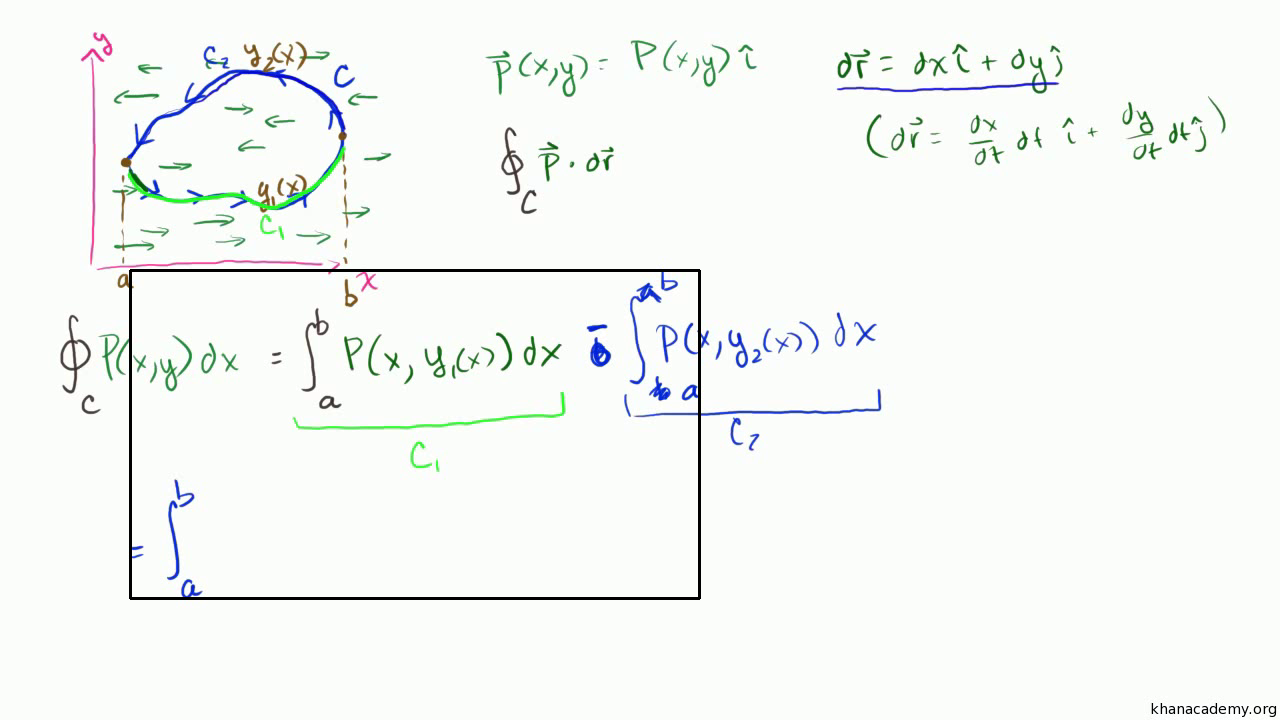 y
C₂ y₂(x) C
y₁(x)
C₁
a b x
p⃗(x,y) = P(x,y) î
dr⃗ = dx î + dy ĵ
(dr⃗ = dx/dt dt î + dy/dt dt ĵ)
∮_C p⃗ · dr⃗
∮_C P(x,y) dx = ∫_a^b P(x, y₁(x)) dx - ∫_a^b P(x, y₂(x)) dx
C₁ C₂
= ∫_a^b
khanacademy.org